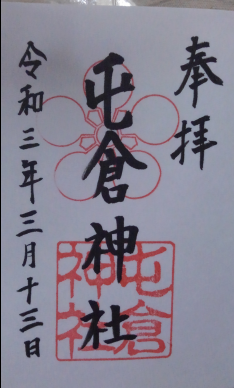 奉拝
屯倉神社
令和三年三月十三日
屯倉
神社